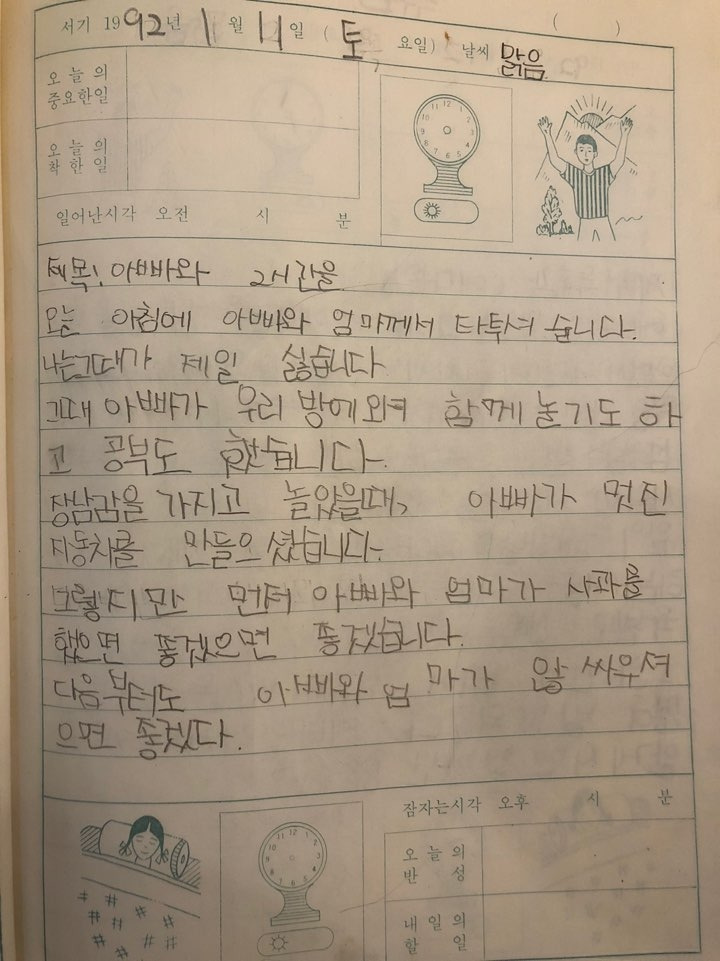 서기 1992년 1월 11일 ( 토 요일) 날씨 맑음 ( )
오늘의
중요한일
오늘의
착한일
일어난시각 오전 시 분
12 1 2 3 4 5 6 7 8 9 10 11
제목! 아빠와 2시간을
오늘 아침에 아빠와 엄마께서 타투셔 습니다.
나는그때가 제일 싫습니다
그때 아빠가 우리 방에와 함께 놀기도 하
고 공부도 했습니다.
장남감을 가지고 놀았을때, 아빠가 멋진
자동차를 만들으셨습니다.
그렇지만 먼저 아빠와 엄마가 사과를
했으면 좋겠으면 좋겠습니다.
다음부터도 아빠와 엄마가 않싸우셔
으면 좋겠다.
잠자는시각 오후 시 분
12 1 2 3 4 5 6 7 8 9 10 11
오늘의
반성
내일의
할일